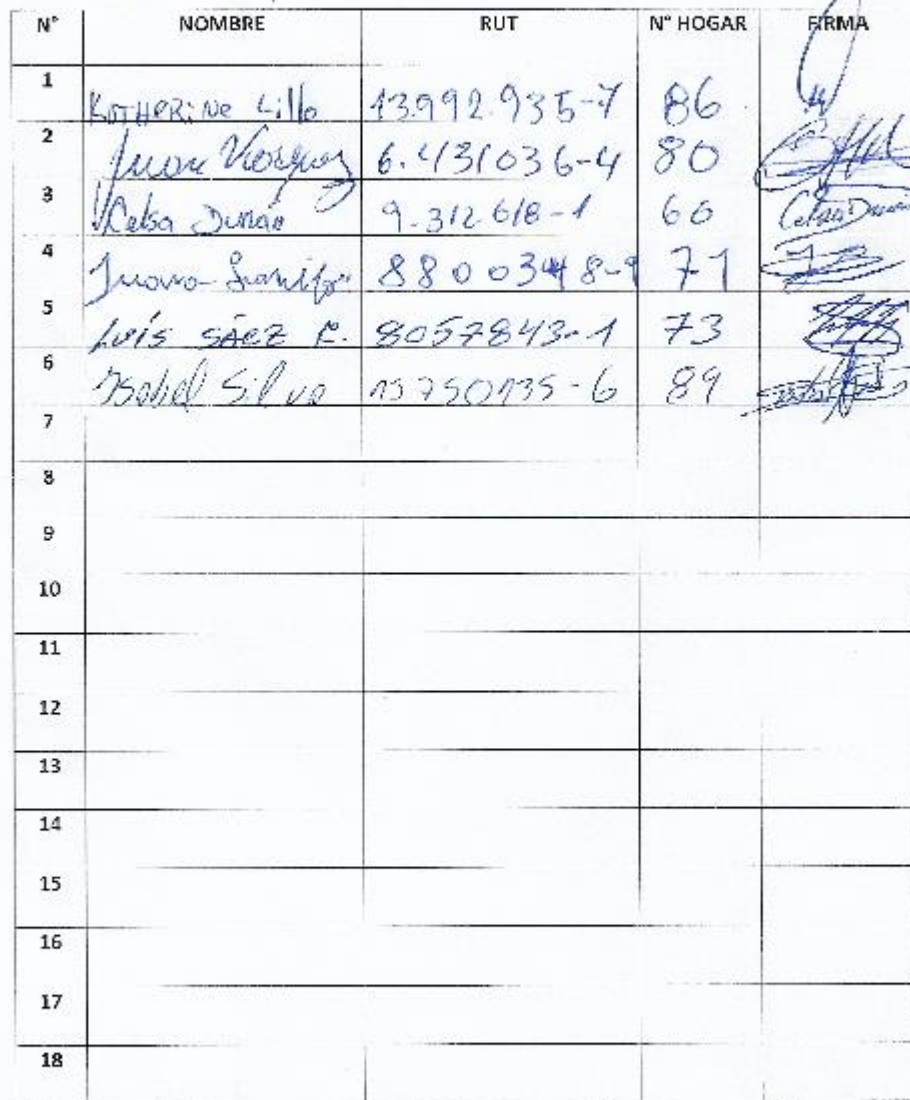 N° NOMBRE RUT N° HOGAR FIRMA
1 KATHERINE Lillo 13.992.935-7 86
2 Juan 6.431036-4 80
3 Celsa Durán 9.312.618-1 66 Celsa Durán
4 Juana 8800348-9 71
5 LUÍS SÁEZ R. 8057843-1 73
6 Isabel Silva 15750135-6 89
7
8
9
10
11
12
13
14
15
16
17
18